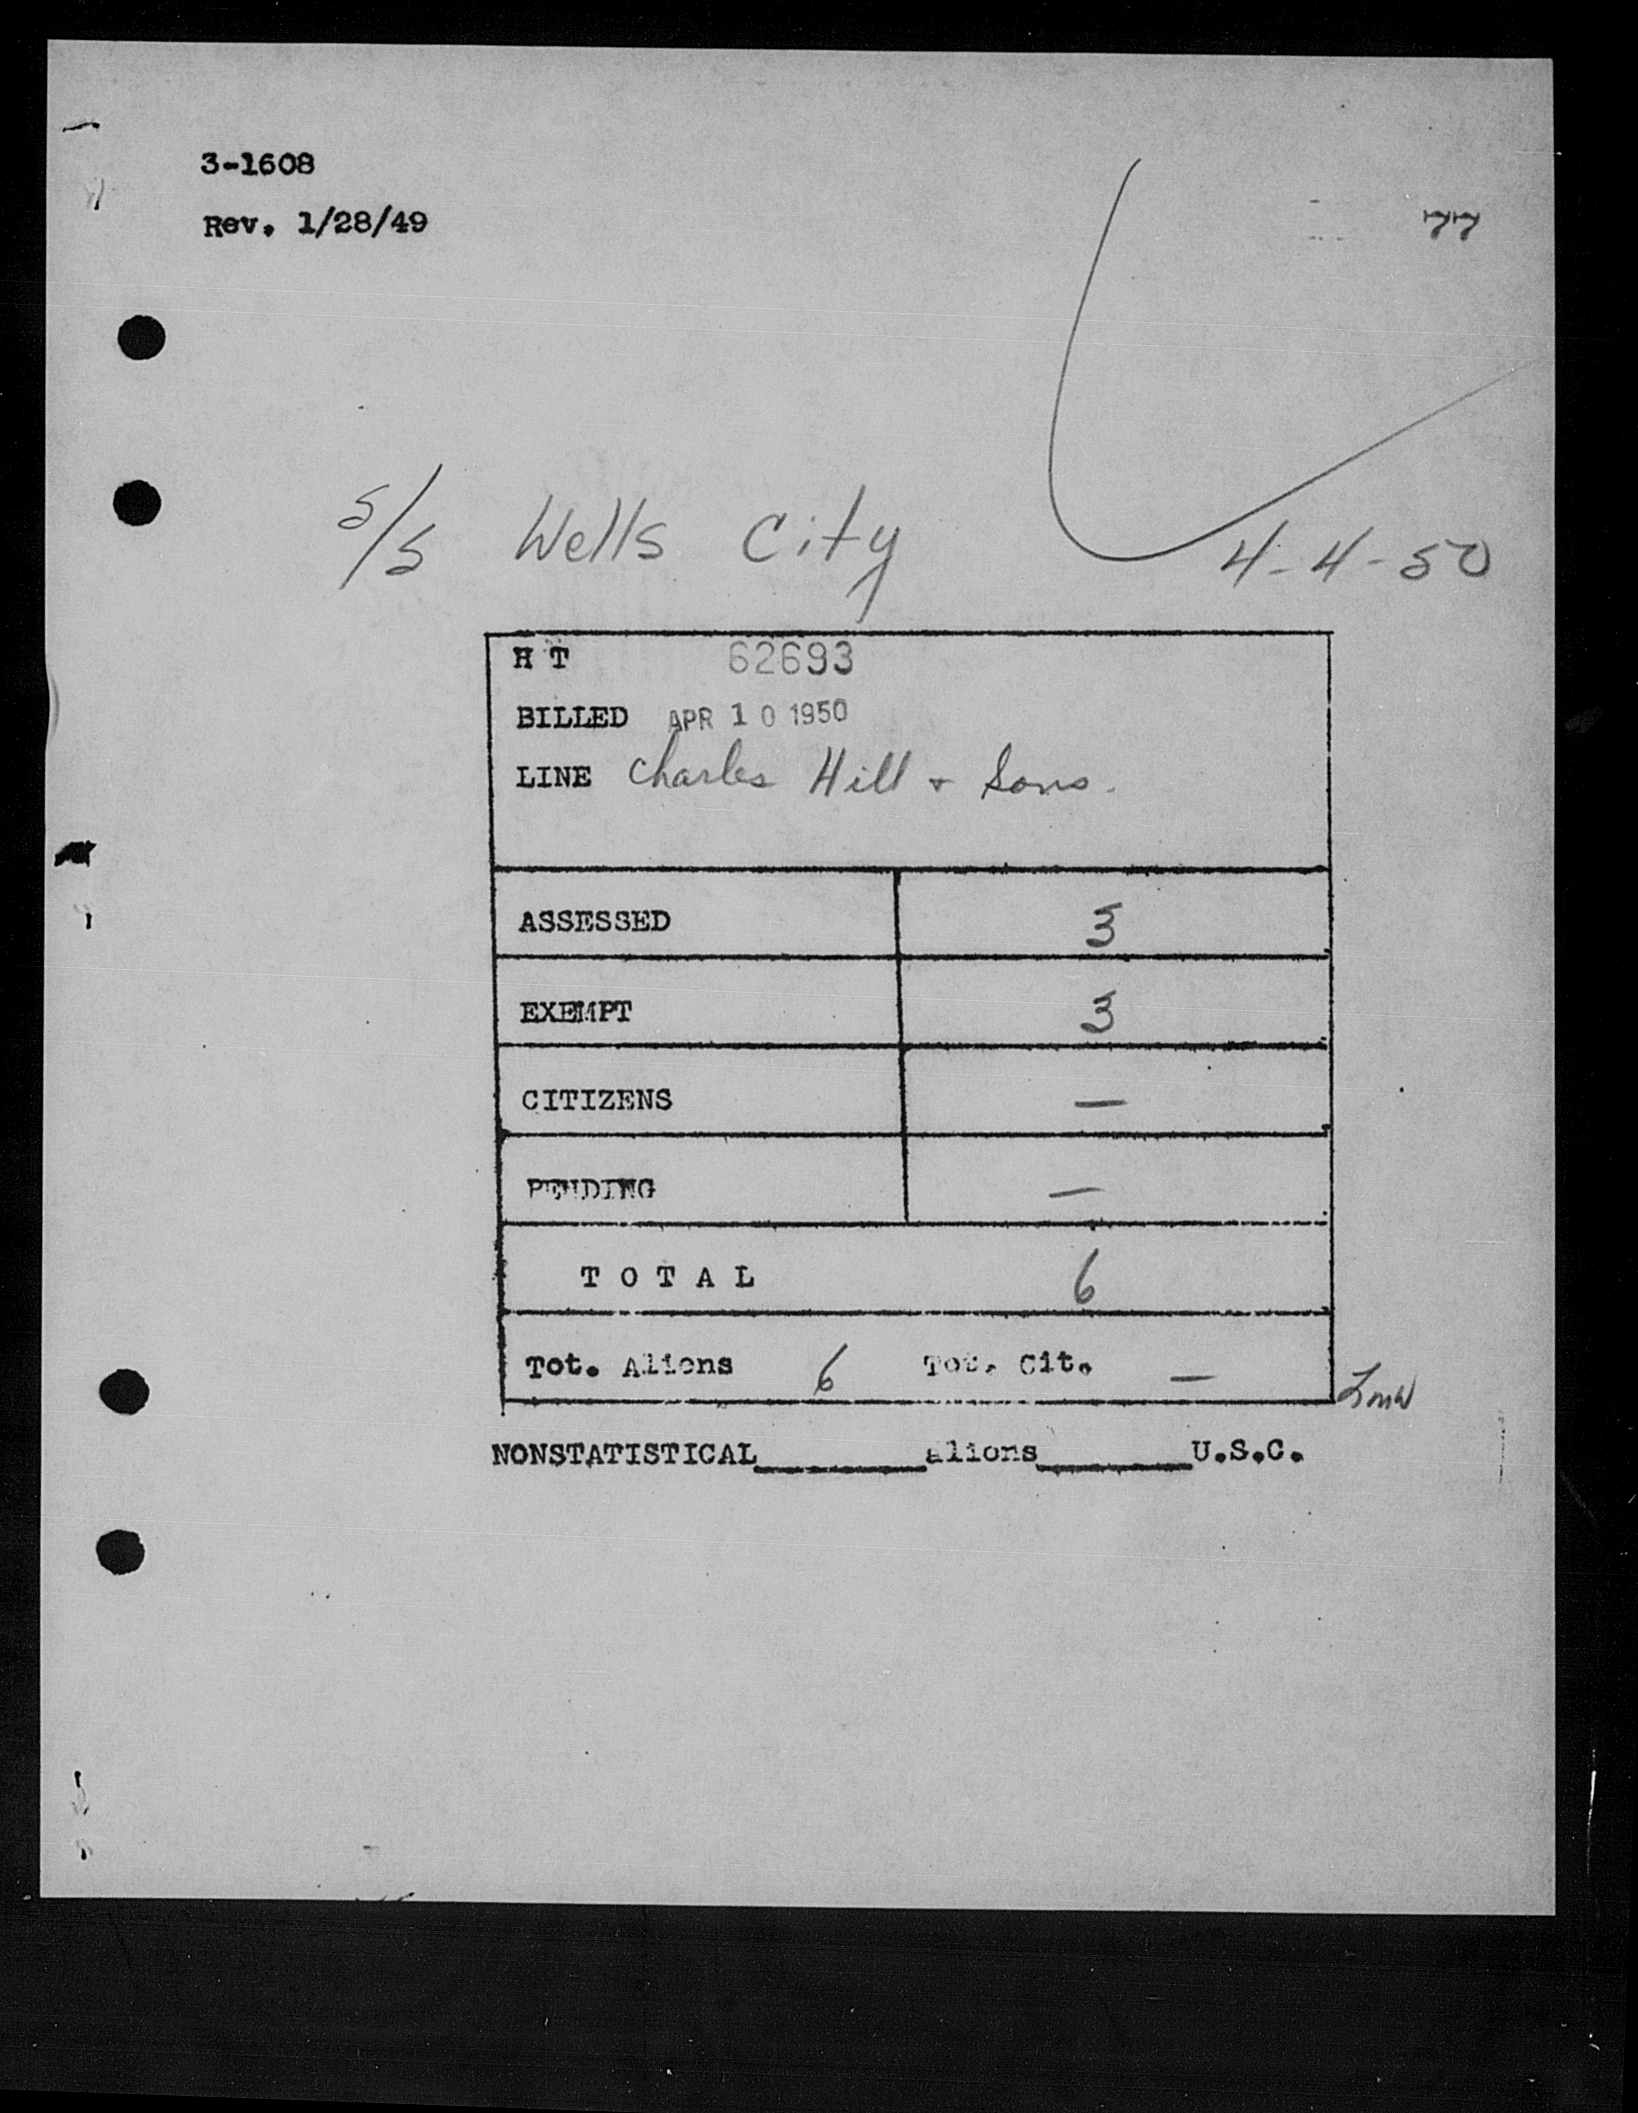 3-1608
Rev. 1/28/49
77
S/S Wells City 4-4-50
H T 62693
BILLED APR 10 1950
LINE Charles Hill + Sons.
ASSESSED 3
EXEMPT 3
CITIZENS —
PENDING —
T O T A L 6
Tot. Aliens 6 Tot. Cit. —
NONSTATISTICAL________aliens_______U.S.C.